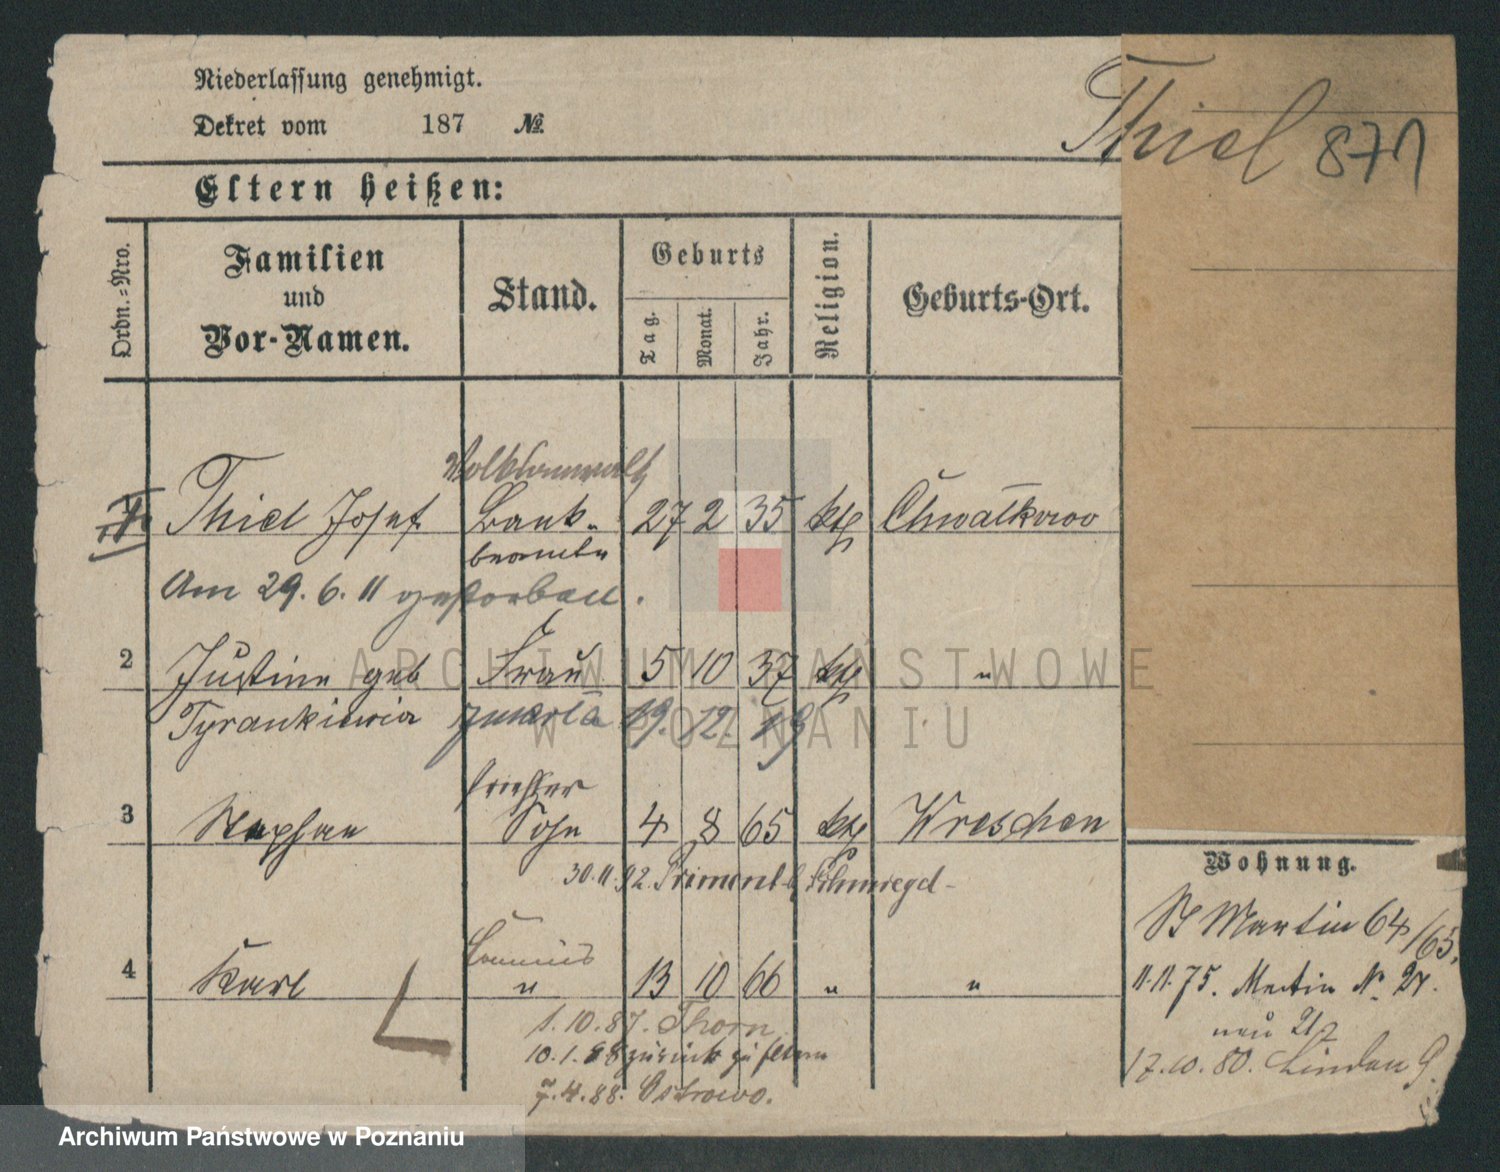 Niederlassung genehmigt.
Dekret vom 187 №
Thiel 871
Eltern heißen:
Ordn.=Nro.
Familien und Vor-Namen.
Stand.
Geburts
Tag.
Monat.
Jahr.
Religion.
Geburts-Ort.
Thiel Josef Bank- 27 2 35 kth Chwałkowo
beamter
Am 29. 6. 11 gestorben.
2 Justine geb Frau 5 10 37 kth "
Tyrankiewicz zmarła 19. 12. 19
Priester
3 Stephan Sohn 4 8 65 kth Wreschen
30.11.92. Priment
4 Karl " 13 10 66 " "
1.10.87. Thorn
10.1.88 zurück zu Eltern
7.4.88. Ostrowo.
Wohnung.
St Martin 64/65.
11.11.75. Martin № 27.
neu
17.10.80. Linden 9.
ARCHIWUM PAŃSTWOWE
W POZNANIU
Archiwum Państwowe w Poznaniu